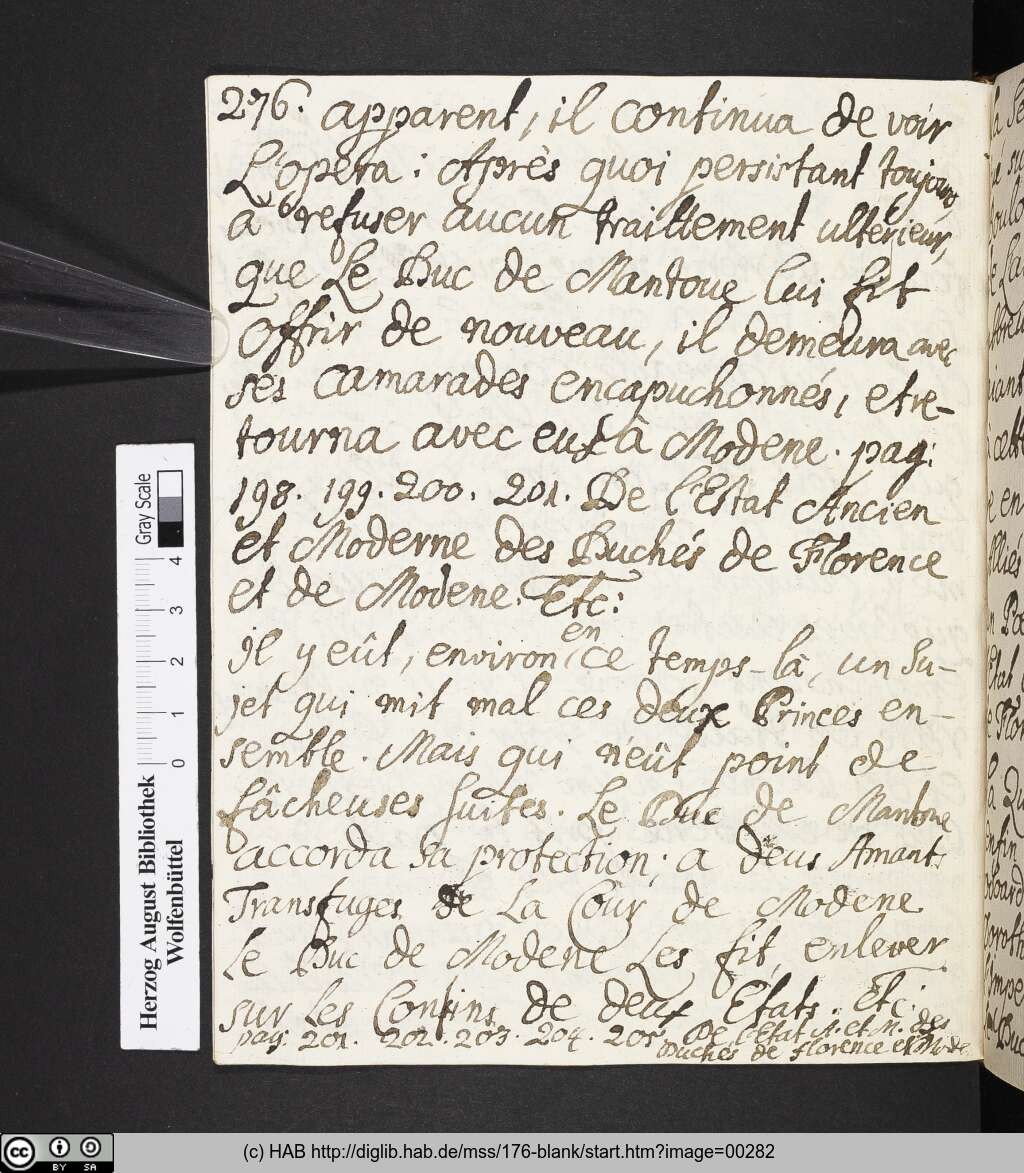 276. apparent, il continua de voir
L'opera: Après quoi persistant toujours,
à refuser aucun traittement ulterieur,
que Le Duc de Mantoue lui fit
offrir de nouveau, il demeura avec
ses camarades encapuchonnés, et re-
tourna avec eux à Modene. pag:
198. 199. 200. 201. De l'Estat Ancien
et Moderne des Duchés de Florence
et de Modene. Etc:
Il y eût, environ en ce temps-là, un Su-
jet qui mit mal ces deux Princes en-
semble. Mais qui n'eût point de
fâcheuses suites. Le Duc de Mantoue
accorda sa protection; a deus Amants
Transfuges de La Cour de Modene.
Le Duc de Modene Les fit, enlever
sur les Confins de deux Etats. Etc:
pag: 201. 202. 203. 204. 205. De l'Etat A. et M. des
Duchés de florence et Mode
Gray Scale
0 1 2 3 4
Herzog August Bibliothek
Wolfenbüttel
(c) HAB http://diglib.hab.de/mss/176-blank/start.htm?image=00282
cc BY SA